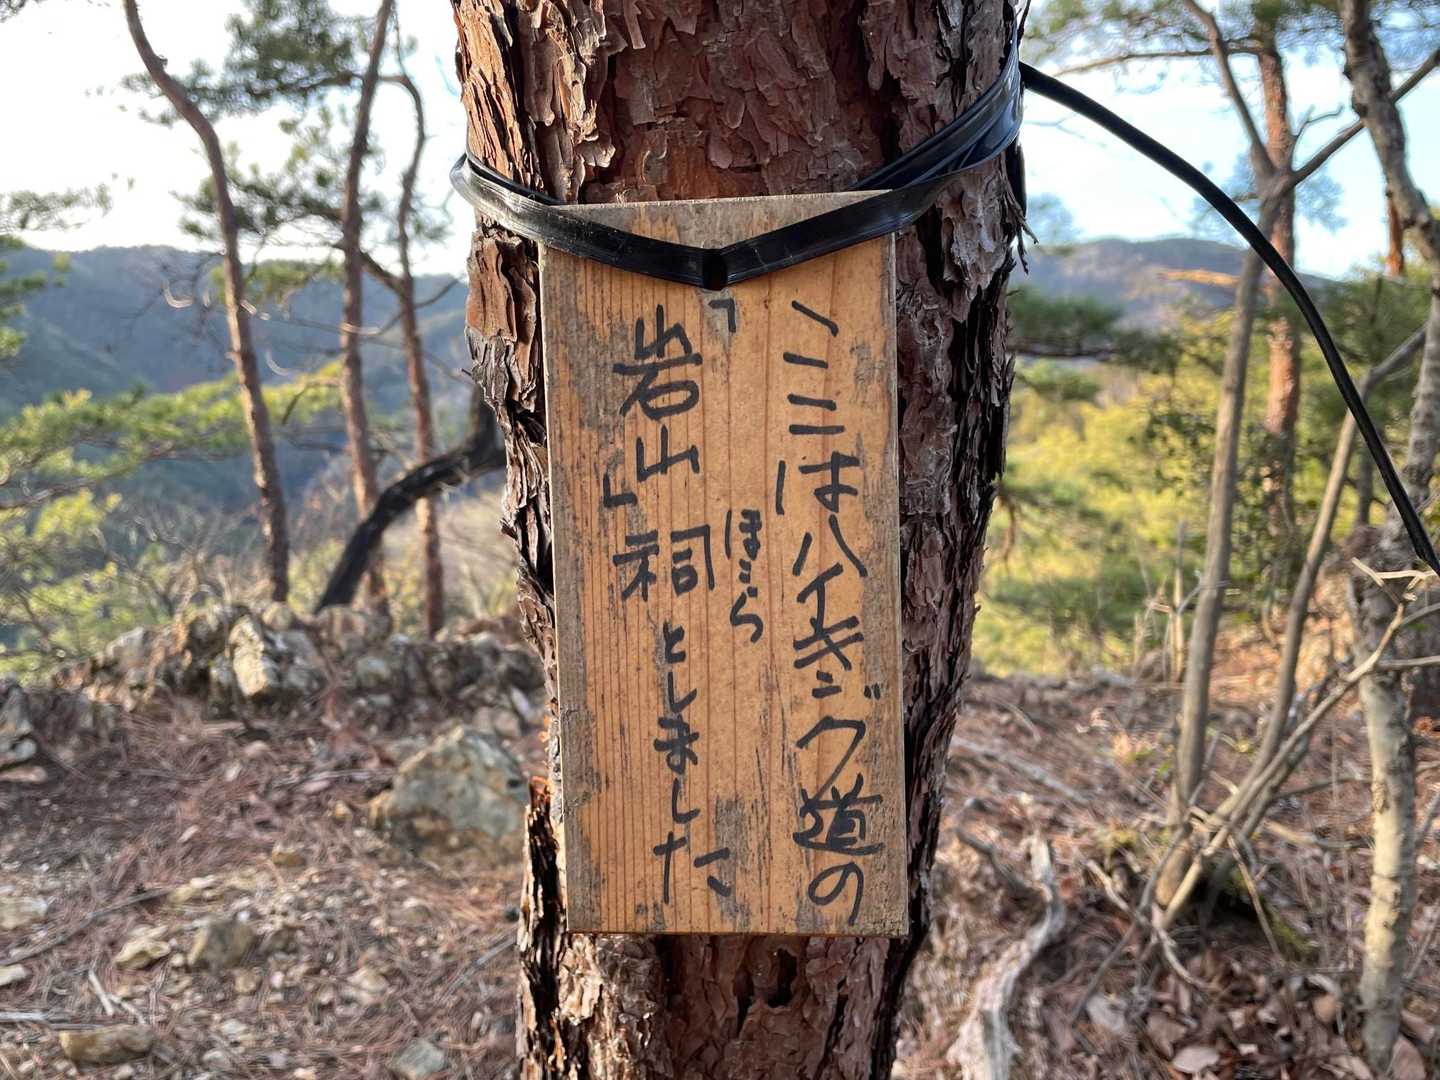 ここはハイキング道の
「岩山」祠としました
ほこら